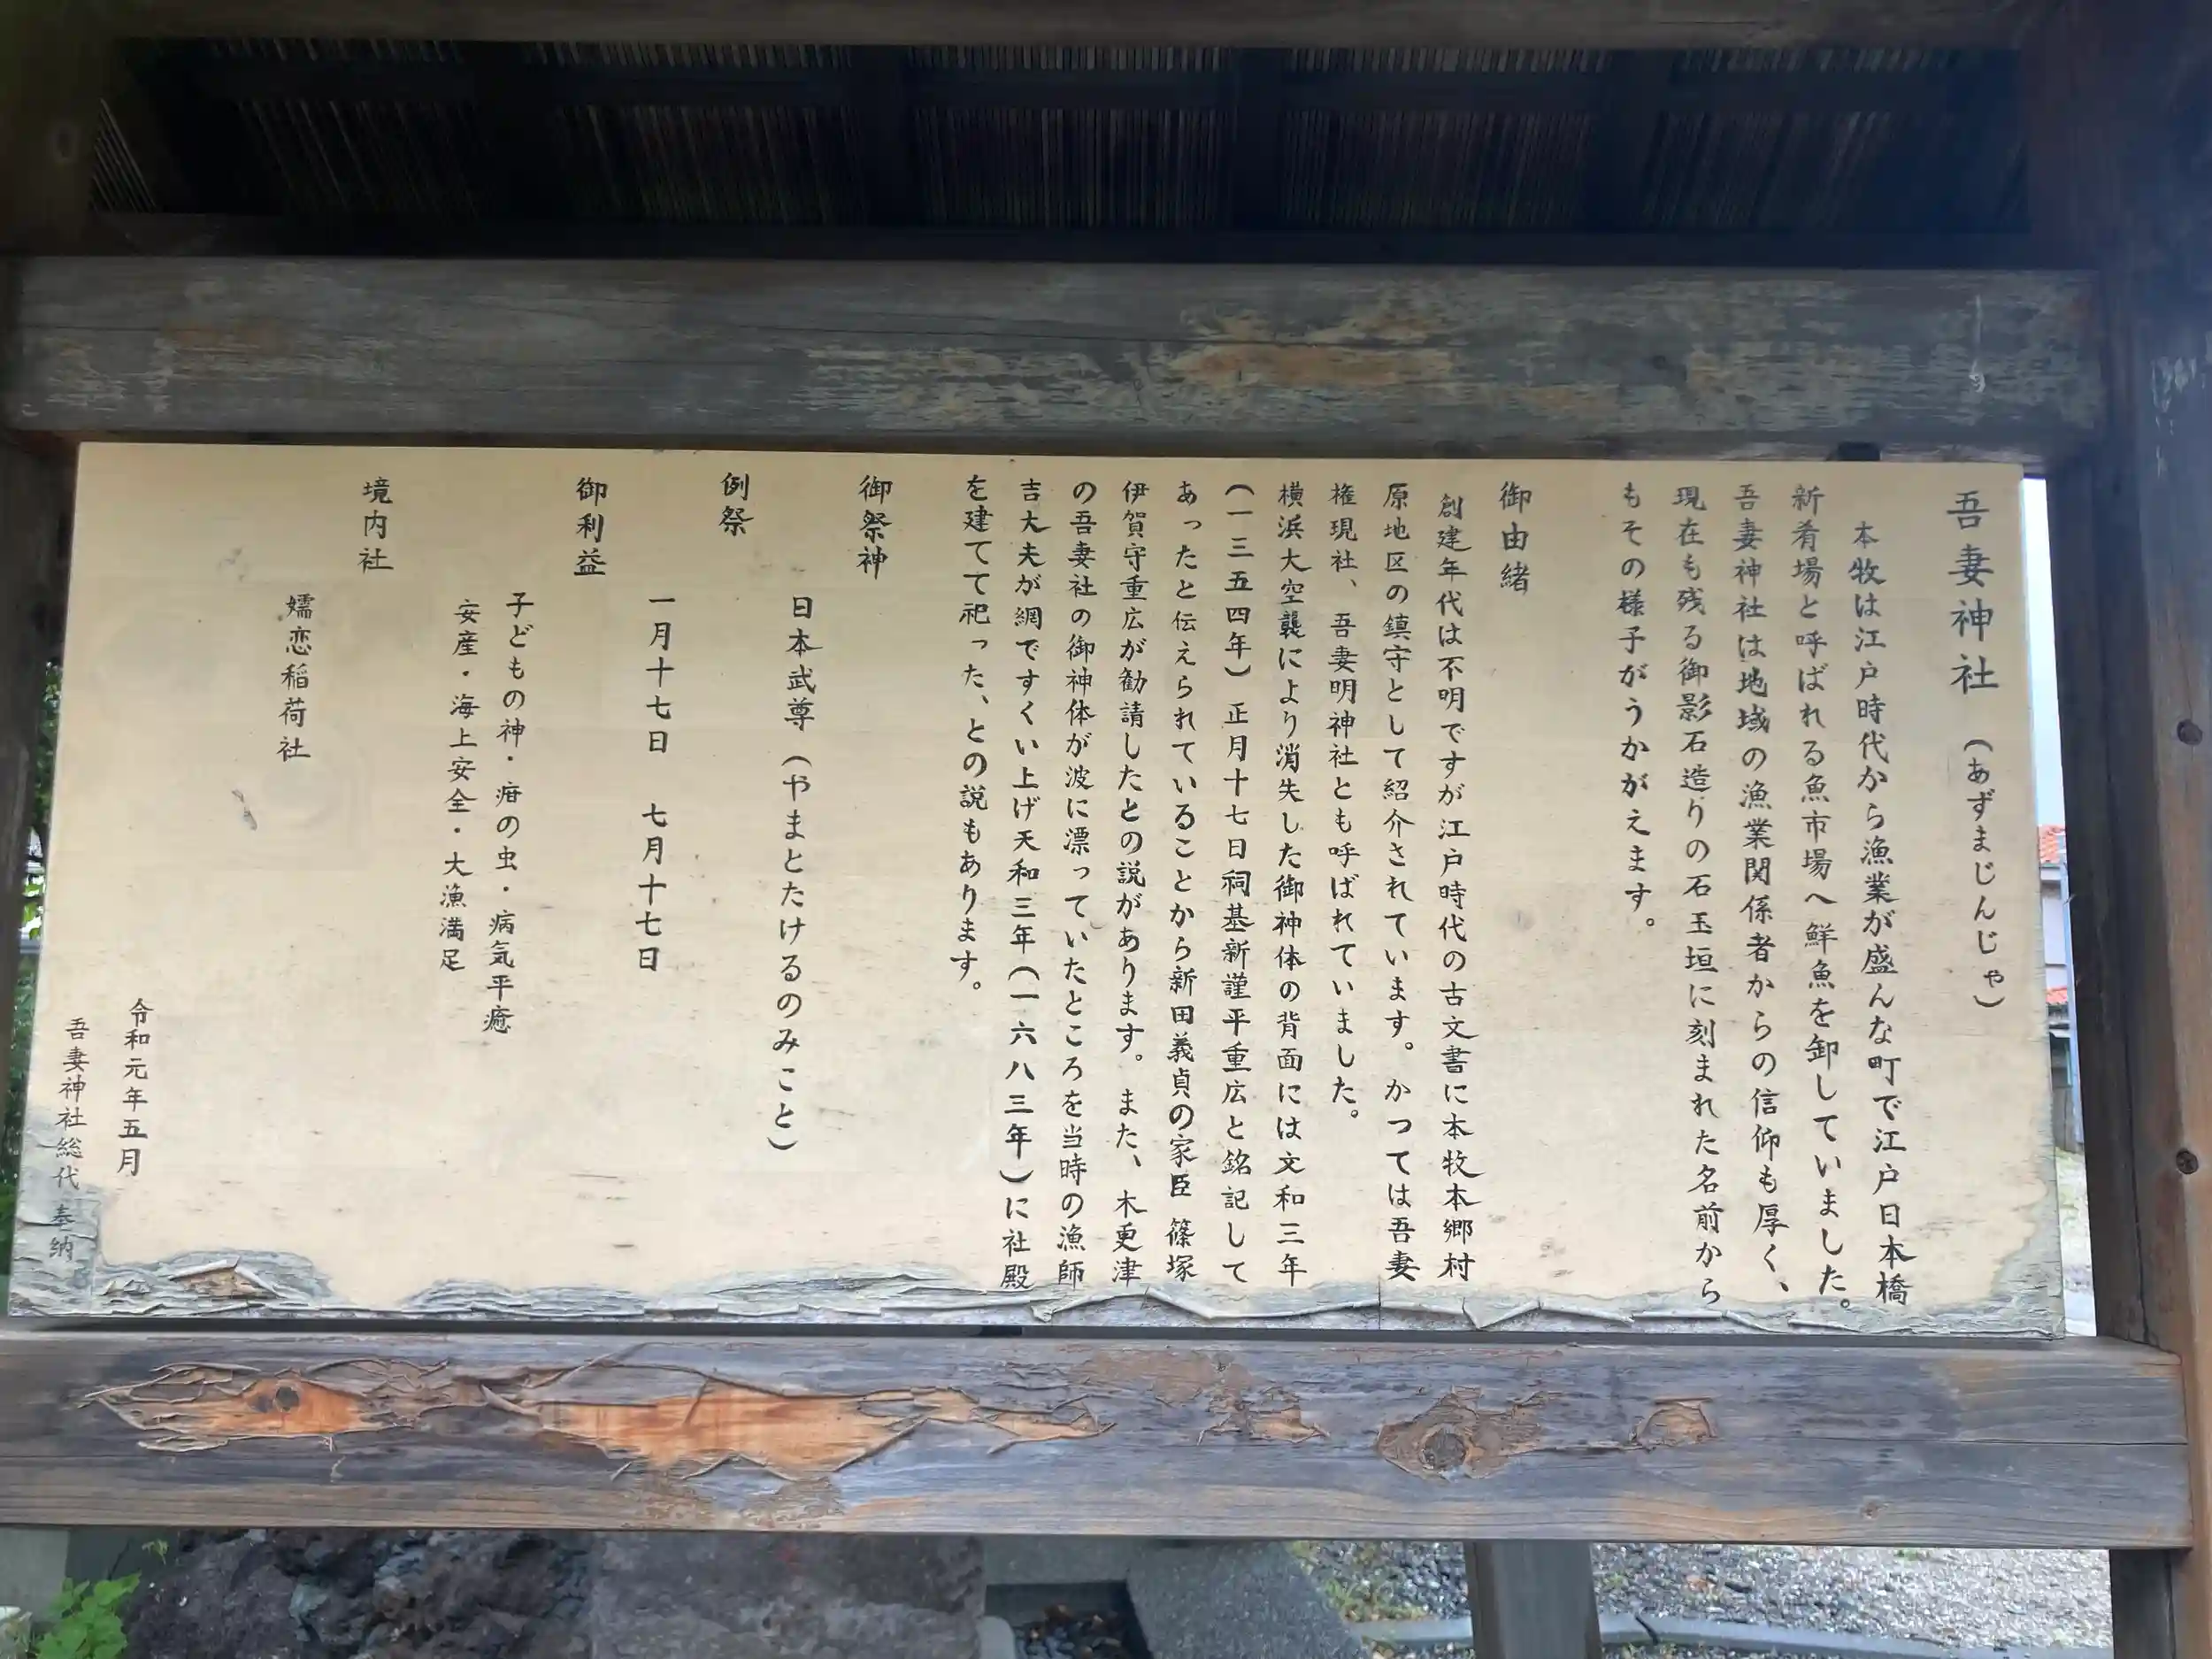 吾妻神社（あずまじんじゃ）
本牧は江戸時代から漁業が盛んな町で江戸日本橋
新肴場と呼ばれる魚市場へ鮮魚を卸していました。
吾妻神社は地域の漁業関係者からの信仰も厚く、
現在も残る御影石造りの石玉垣に刻まれた名前から
もその様子がうかがえます。
御由緒
創建年代は不明ですが江戸時代の古文書に本牧本郷村
原地区の鎮守として紹介されています。かつては吾妻
権現社、吾妻明神社とも呼ばれていました。
横浜大空襲により消失した御神体の背面には文和三年
（一三五四年）正月十七日祠基新謹平重広と銘記して
あったと伝えられていることから新田義貞の家臣 篠塚
伊賀守重広が勧請したとの説があります。また、木更津
の吾妻社の御神体が波に漂っていたところを当時の漁師
吉大夫が網ですくい上げ天和三年（一六八三年）に社殿
を建てて祀った、との説もあります。
御祭神
日本武尊（やまとたけるのみこと）
例祭
一月十七日 七月十七日
御利益
子どもの神・疳の虫・病気平癒
安産・海上安全・大漁満足
境内社
嬬恋稲荷社
令和元年五月
吾妻神社総代 奉納